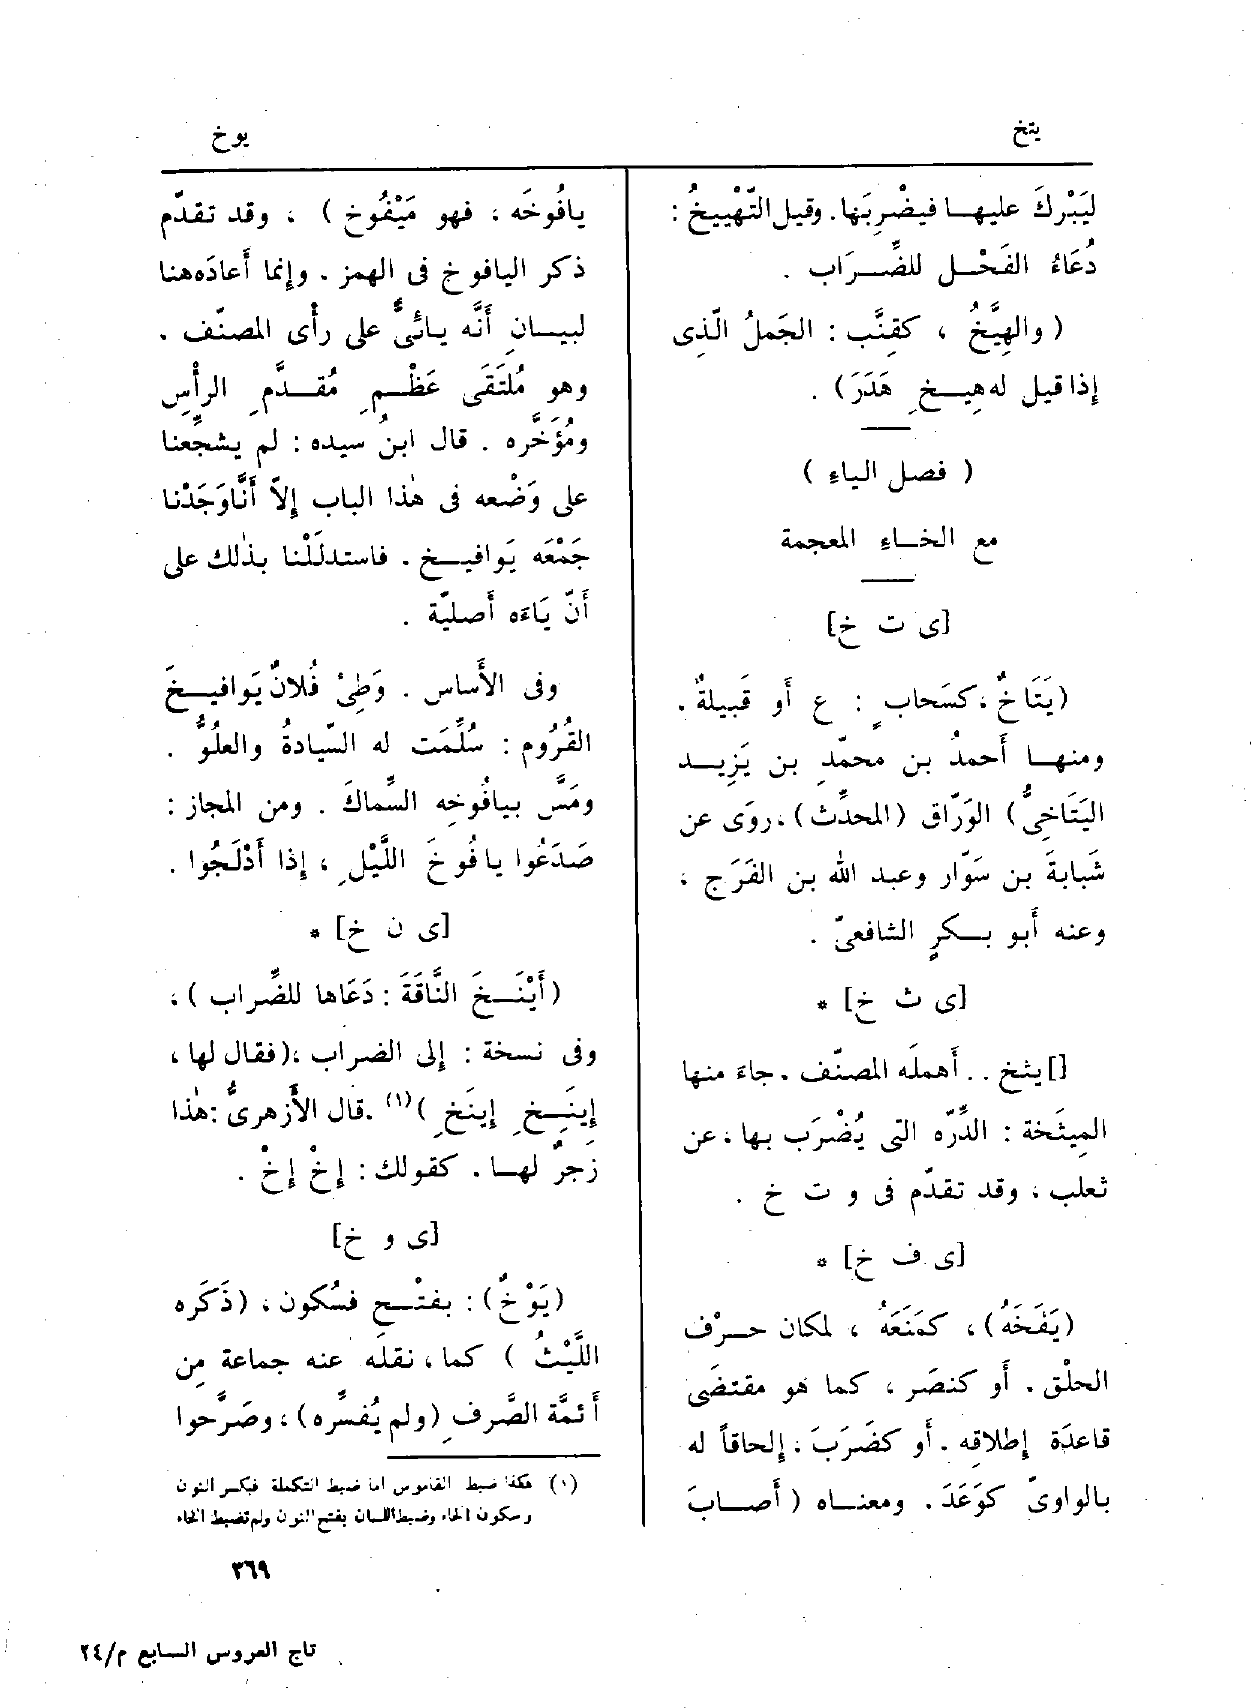 يتخ
يوخ
لِيَبْرِكَ عليهـا فيضْرِبَها. وقيل التَّهْيِيخُ :
دُعَاءُ الفَحْـل للضِّـرَاب .
( والهِيَّخُ ، كقِنَّب : الجَملُ الَّذِى
إذا قيل له هِيـخِ هَدَرَ) .
( فصل الياء )
مع الخـاء المعجمة
[ى ت خ]
(يَتَاخٌ ، كسَحابٍ : ع أو قَبيلةٌ .
ومنهـا أَحمدُ بن محمّدِ بن يَزِيـد
اليَتَاخِىُّ) الوَرّاق (المحدِّث)، روَى عن
شَبابةَ بن سَوّار وعبد اللّٰه بن الفَرَج ،
وعنه أَبو بـكرٍ الشافعىّ .
[ى ث خ] *
[]يثخ . . أَهملَه المصنّف . جاءَ منها
المِيثَخة : الدِّرّه التى يُضْرَب بها ، عن
ثعلب ، وقد تقدّم فى و ت خ .
[ى ف خ] *
(يَفَخَهُ) ، كمَنَعَهُ ، لمكان حـرْف
الحلْق . أَو كنصَر ، كما هو مقتضَى
قاعدَة إطلاقِه . أَو كضَرَبَ ، إلحاقاً له
بالواوىّ كوَعَدَ . ومعنـاه (أَصـابَ
يافُوخَه ، فهو مَيْفُوخ ) ، وقد تقدّم
ذكر اليافوخ فى الهمز . وإنما أَعادَه هنا
لبيـانِ أَنَّه يـائىٌّ على رأْى المصنّف .
وهو مُلتَقَى عَظْـمِ مُقـدَّمِ الرأْسِ
ومُؤخَّره . قال ابنُ سيده : لم يشجِّعنا
على وَضْعه فى هٰذا الباب إلاّ أَنَّا وَجَدْنا
جَمْعَه يَوافيـخ . فاستدلَلْنا بذٰلك على
أَنّ يَاءَه أَصليّة .
وفى الأَساس . وَطِئَ فُلانٌ يَوافيـخَ
القُرُوم : سُلِّمَت له السِّيادةُ والعلُوُّ .
ومَسَّ بيافُوخِه السِّماكَ . ومن المجاز :
صَدَعُوا يافُوخَ اللَّيْلِ ، إذا أَدْلَجُوا .
[ى ن خ] *
(أَيْنَـخَ النَّاقَةَ : دَعَاها للضِّراب ) ،
وفى نسخة : إلى الضراب ، (فقال لها ،
إِينَـخِ إِينَخِ )(١) . قال الأَزهرىُّ : هٰذا
زجرٌ لهـا . كقولك : إِخْ إِخْ .
[ى و خ]
(يَوْخٌ) : بفتْـح فسُكون ، (ذَكَره
اللَّيْثُ ) كما ، نقلَه عنه جماعة مِن
أَئمّة الصَّرفِ (ولم يُفسِّره) ، وصَرَّحوا
(١) هكذا ضبط القاموس اما ضبط التكملة فبكسر النون
وسكون الخاء وضبط اللسان بفتح النون ولم تضبط الخاء
٣٦٩
تاج العروس السـابع م/٢٤